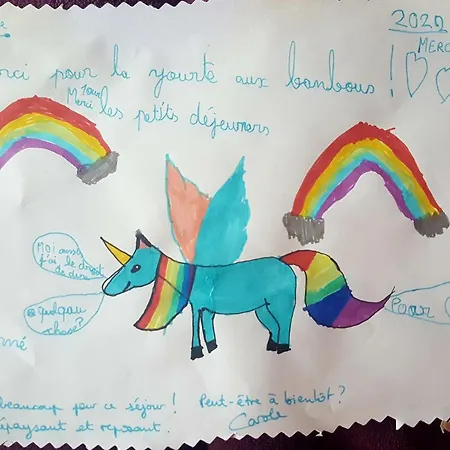 2020
MERC
rci pour la yourte aux bambous !
Pour
Merci les petits déjeuners
Moi aussi
j'ai le droit
de dire
quelque
chose ?
Poar
mé
beaucoup pour ce séjour ! Peut-être à bientôt ?
épaysant et reposant. Carole